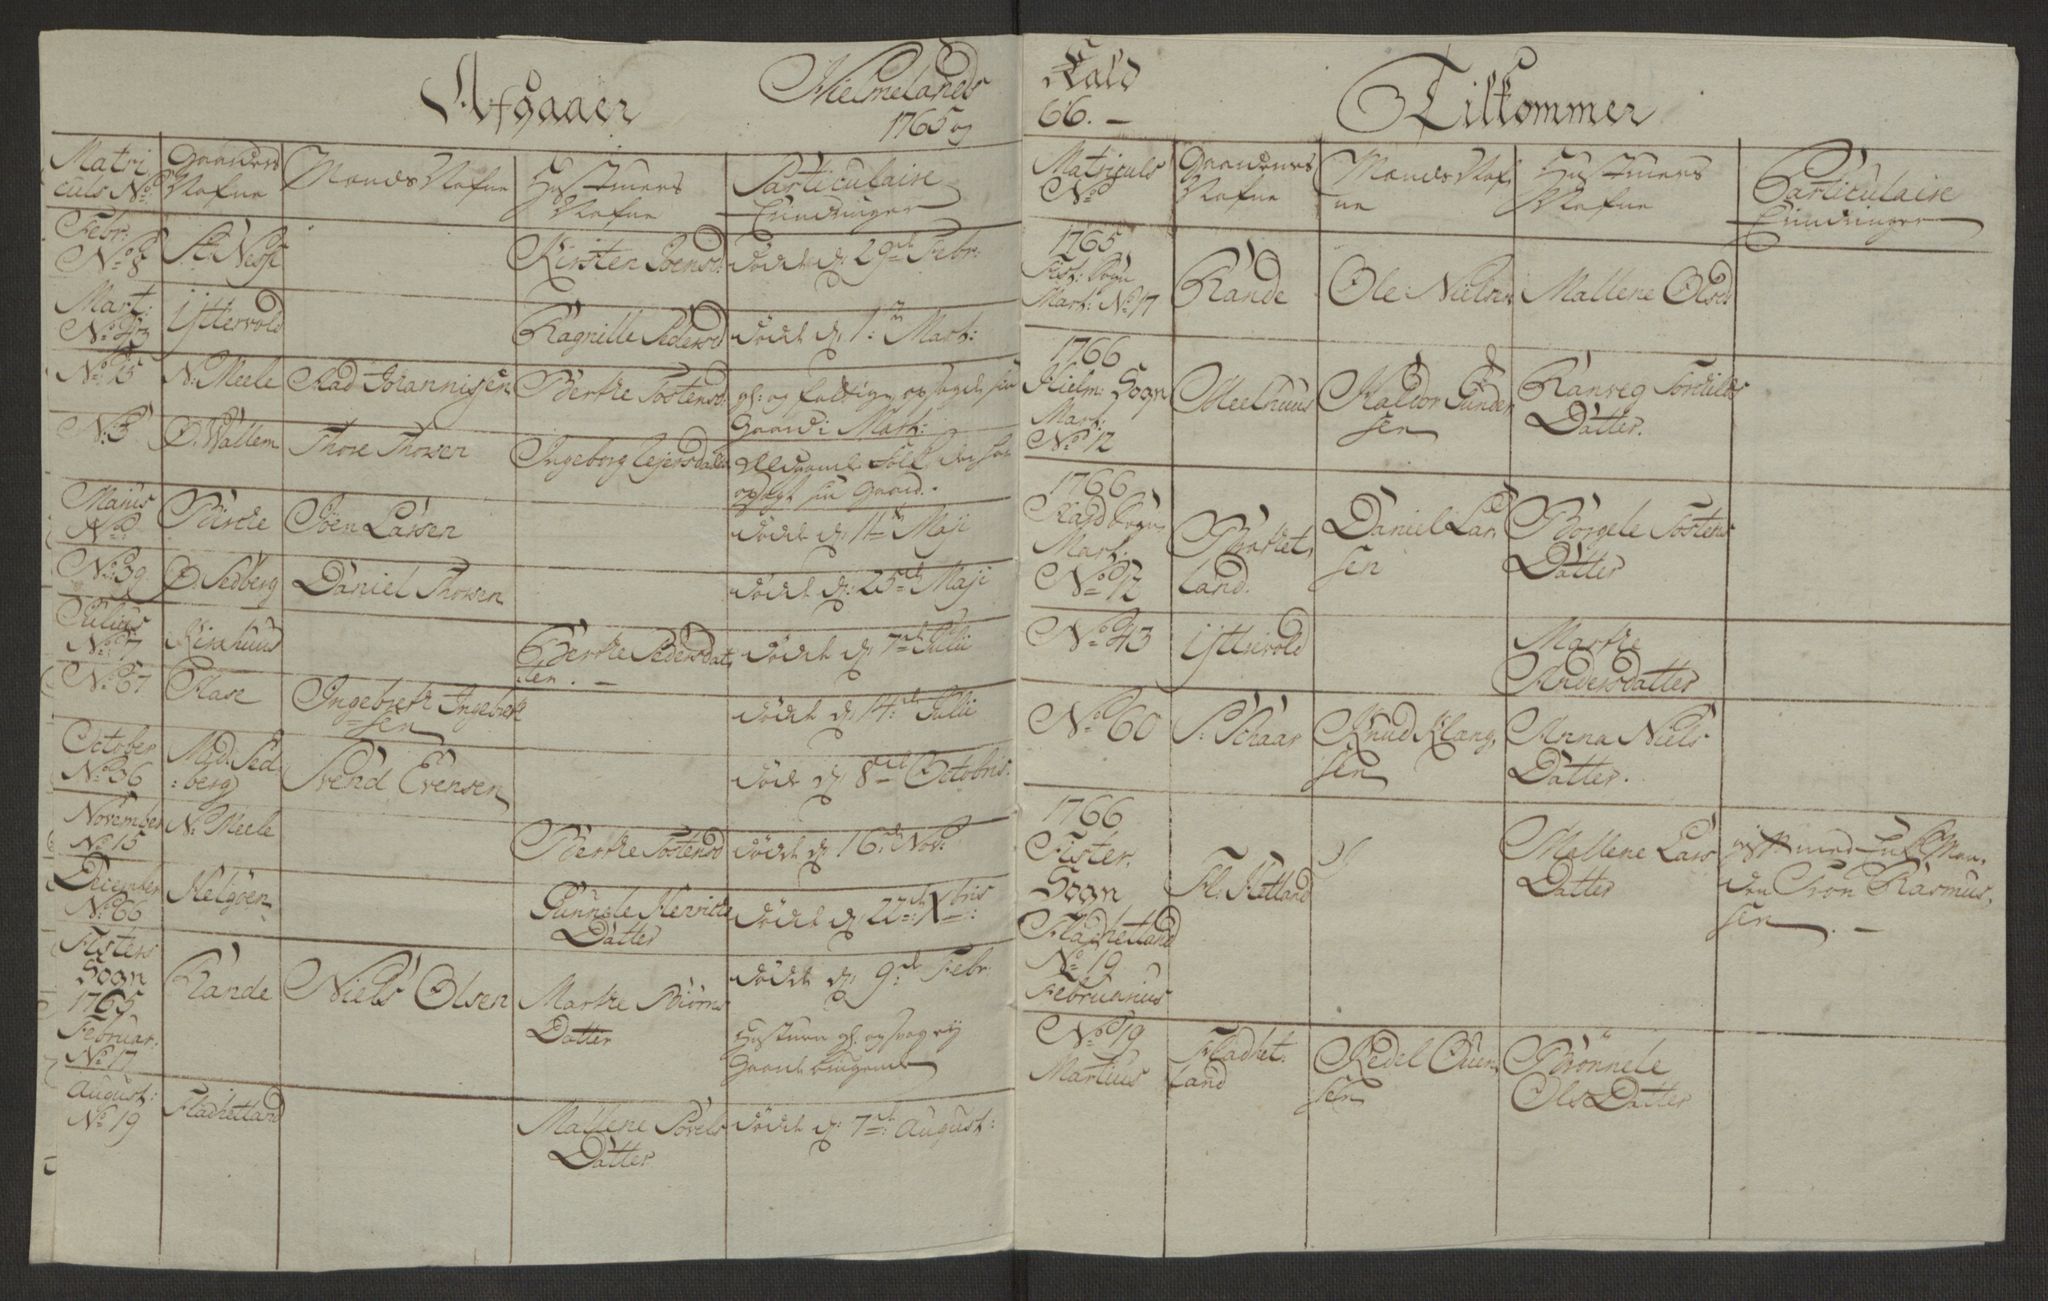 Afgaaer
Hielmelands
1765 og
Matri
culs No
Gaardens
Nafne
Mands Nafne
Hustruers
Nafne
Particulaire
Erindringer
Febr:
No 8
Kirsten Joensd:
døde d: 29de Febr:
Mart:
No 43
Yttervold
Ragnille Pedersd
døde d: 1: Mart:
No 15
N: Meele
Aad Johannissen
Berthe Tostensd:
gl: og fattig, opsagde sin
Gaard i Mart:
No 3
Ø. Vallem
Thore Thorsen
Ingeborg
Folk
opsagt sin Gaard.
Majus
Birke
Joen Larsen
døde d: 11te Maji
No 39
Ø. Sedberg
Daniel Thorsen
døde d: 25de Maji
Julius
No 7
Kirkhuus
Berthe Pedersdat,
ter. —
døde d: 7de Julii
No 67
Ingebreth Ingebreth
sen
døde d: 14de Julii
October
No 36
Mid: Sed
:berg
Svend Evensen
døde d: 8de Octobris:
November
No 15
N: Meele
Berthe Tostensd
døde d: 16de Novb:
December
No 66
Helgøen
Gunnele Henrichs
Datter
døde d: 22de Xbris:
Fisters
Sogn
1765
Februar.
No 17
Rande
Niels Olsen
Marthe Biørns
Datter
døde d: 9de Febr:
Hustruen gl:
August:
No 19
Fladhetland
Mallene Povels
Datter
døde d: 7de August:
Kald
66. —
Tilkommer
Matriculs
No
Gaardenes
Nafne
Mands Naf,
ne
Hustruers
Nafne
Particulaire
Erindringer
1765
Fist: Sogn
Mart: No 17
Rande
Ole Nielsen
Mallene Olsd:
1766
Hielm: Sogn
Mart:
No 12
Meelhuus
Haldor Gunder
sen
Ranveg Tordils
Datter.
1766
Sogn
Mart.
No 12
land.
Daniel Lar,
sen
Børgele Tostens
Datter
No 43
Yttervold
Marthe
Andersdatter
No 60
S. Schaar
Knud Klang,
sen
Anna Niels
Datter.
1766
Fister.
Sogn
Fladhetland
No 19
Februarius
Fl. Hetland
Mallene Lars
Datter
gift med Enkeman,
den Rasmus,
sen. —
No 19
Martius
Fladhet.
land
Redel
sen
Brønnele
Ols Datter